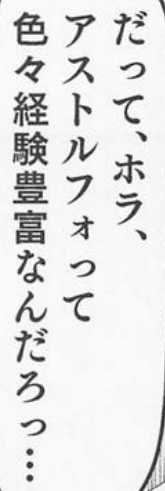 だって、ホラ、
アストルフォって
色々経験豊富なんだろっ…